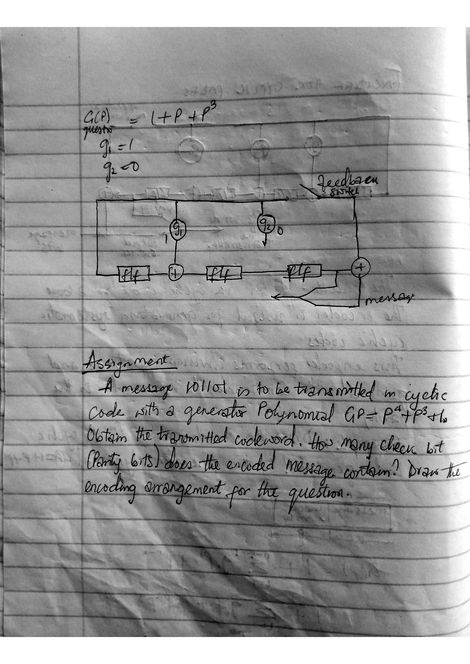 G(P) = 1+P+P³
g₁ = 1
g₂ = 0
feedback
switch
g₁ 1
g₂ 0
f/f + f/f f/f +
message
Assignment
A message 101101 is to be transmitted in cyclic
code with a generator Polynomial GP = P⁴+P³+1.
Obtain the transmitted codeword. How many check bit
(Parity bits) does the encoded message contain? Draw the
encoding arrangement for the question.